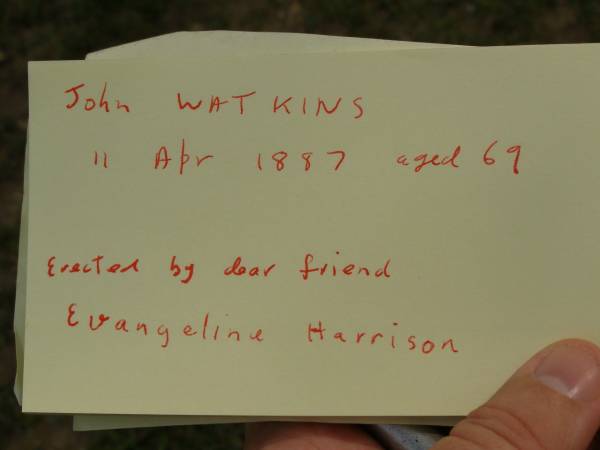 John WATKINS
11 Apr 1887 aged 69
Erected by dear friend
Evangeline Harrison